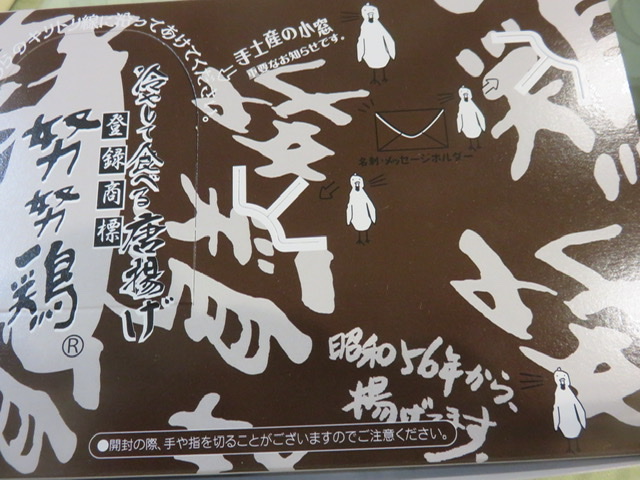 のキリトリ線に沿ってあけてください。
手土産の小窓
重要なお知らせです。
冷やして食べる唐揚げ
登録商標
努努鶏
®
名刺・メッセージホルダー
昭和56年から、
揚げてます。
●開封の際、手や指を切ることがございますのでご注意ください。